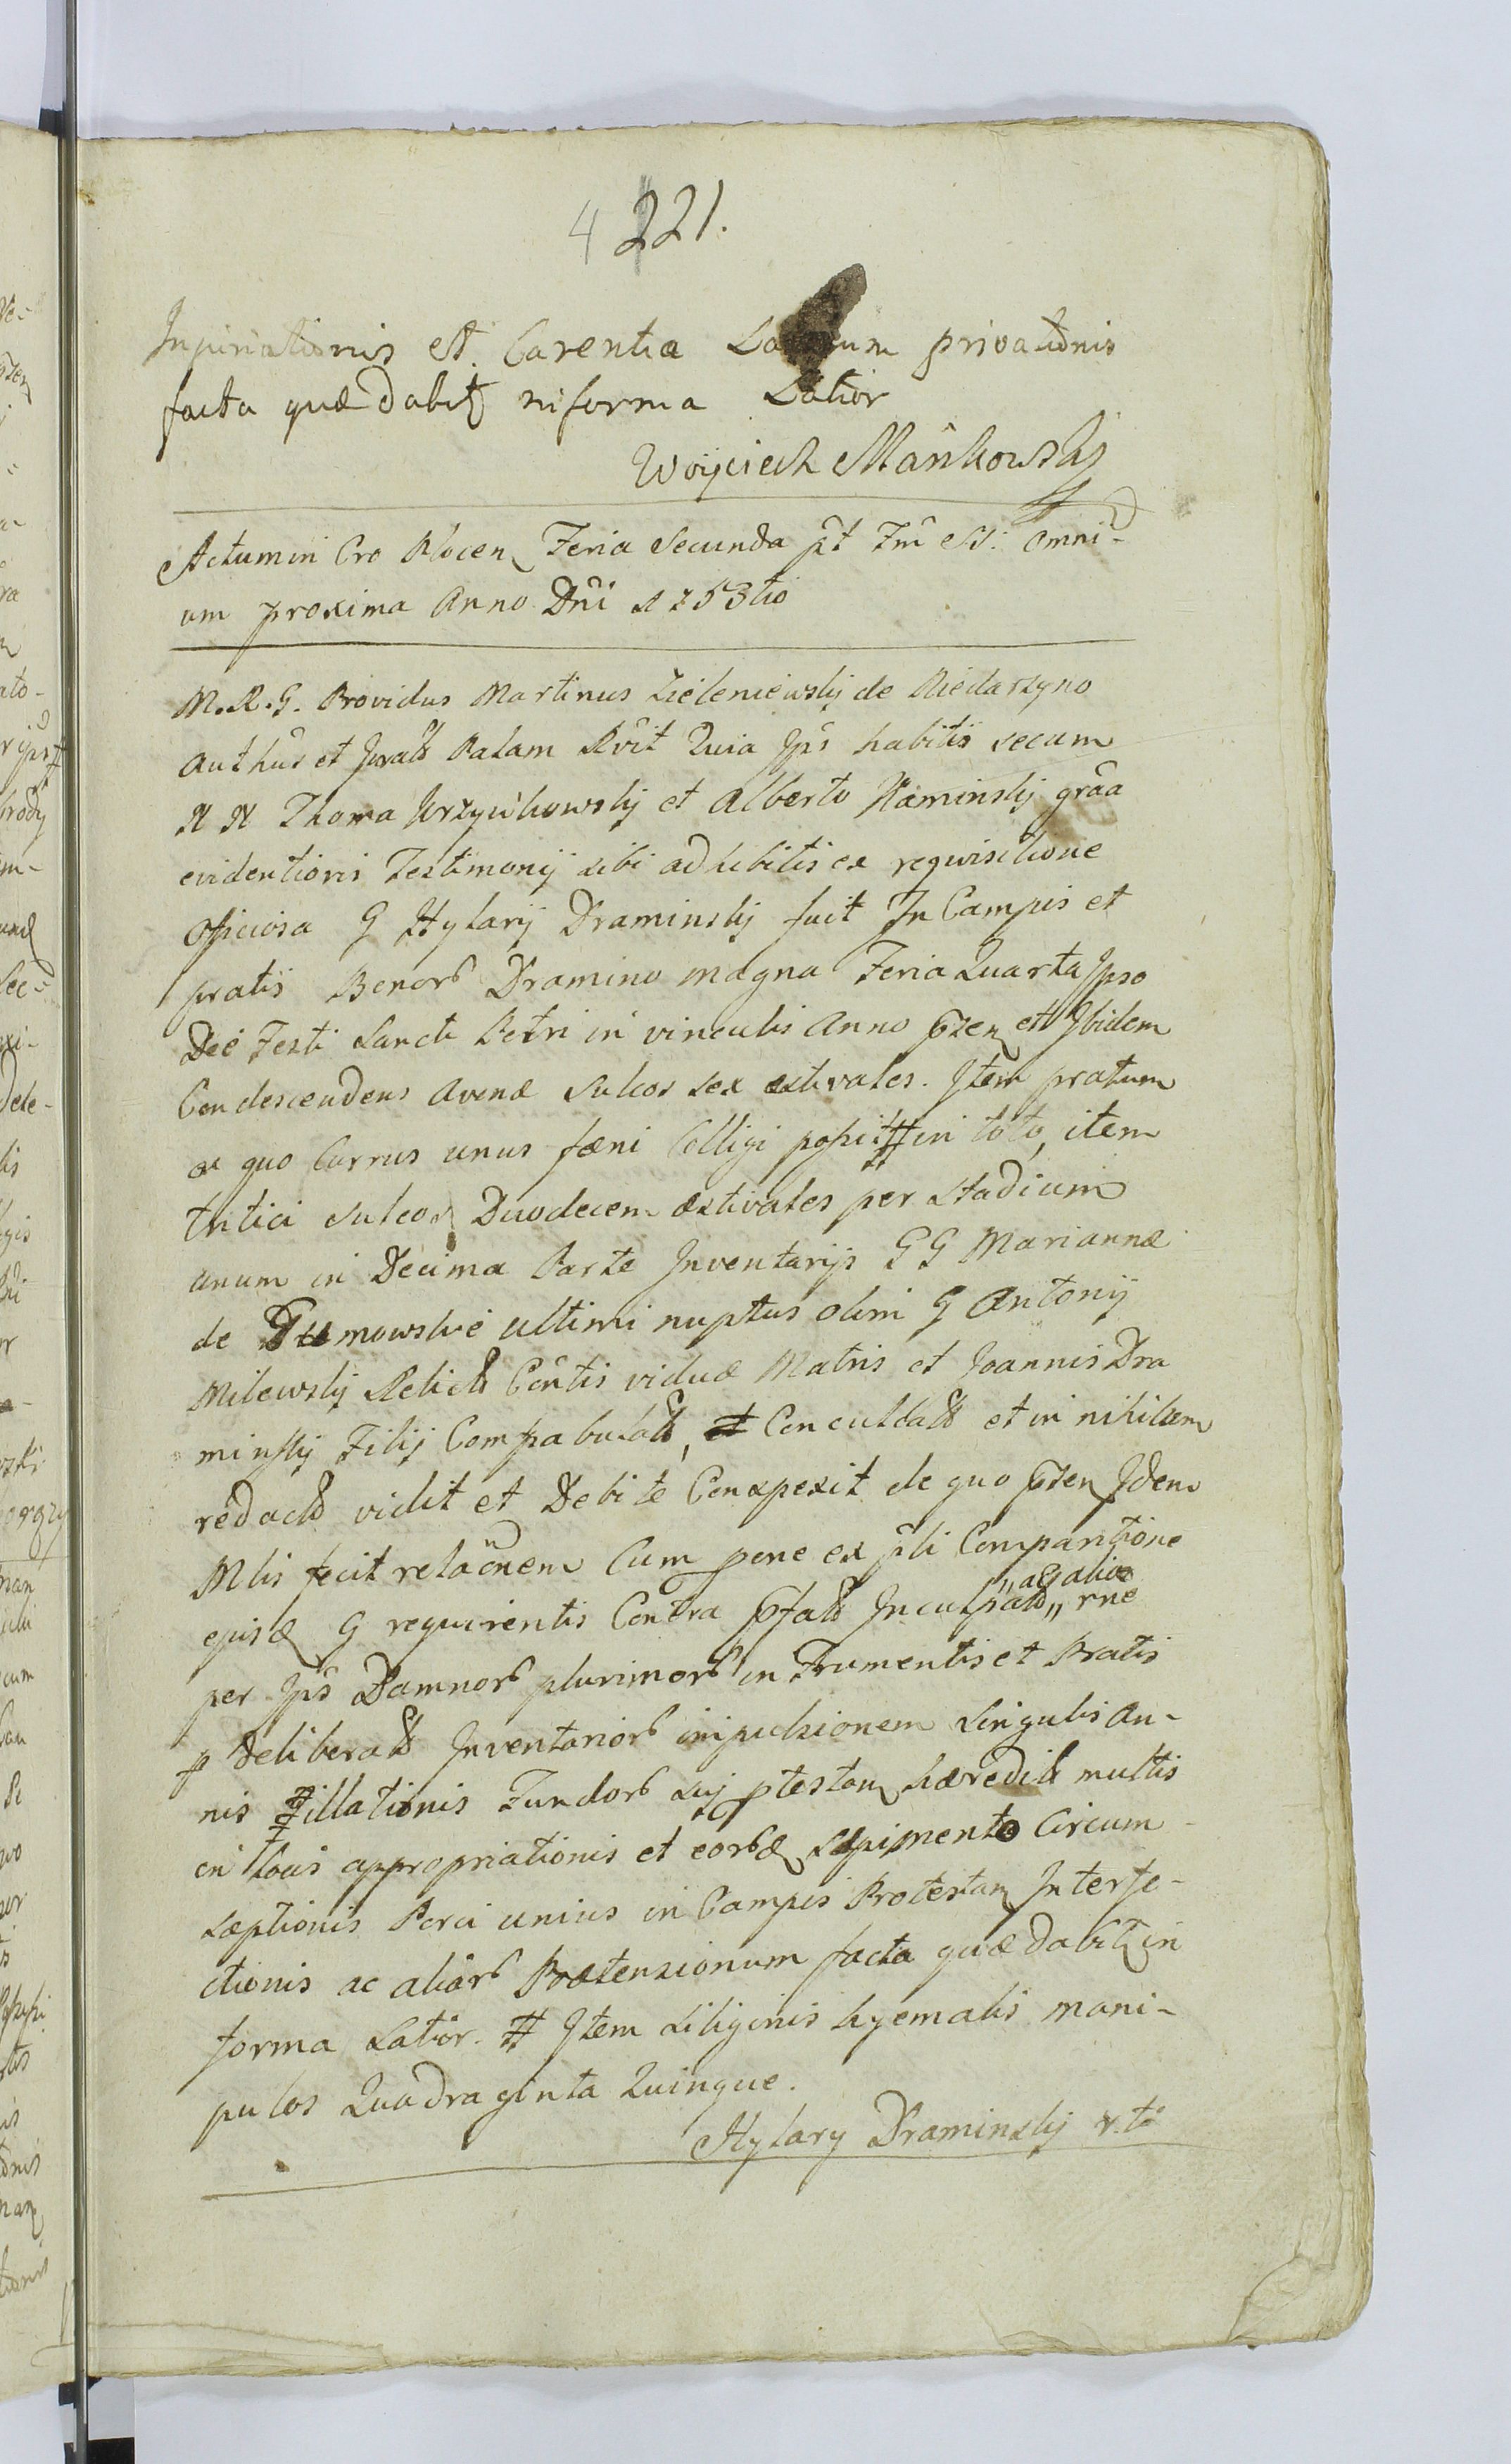 4 221.
et Carentia privationis
facta quæ dabit in forma Latior
Woyciech Mańkowskj
Actum in Cro Plocen Feria Secunda pt Fm SS: Omni-
um proxima Anno Dni 1753tio
M.R.G. Providus Martinus Zieleniewskj de Niedarzyno
authus et Jurats Palam Rvit Quia Jps habitis secum
N N Thoma Krzyczkowskj et Alberto Kaminskj graa
evidentioris Testimonij sibi adhibitis ex requisitione
Officiosa G Hylarij Draminskj fuit In Campis et
pratis Bonorb Dramino magna Feria Quarta Jpso
Die Festi Sancti Petri in vinculis Anno Pzen et Ibidem
Condescendens Avenæ Sulcos sex æstivales. Item pratum
ex quo Currus unus fæni Colligi popit # in toto, item
tritici sulcos Duodecem æstivales per stadium
unum in Decima Parte Inventarijs GG Mariannæ
de ultimi nuptus olim G Antonij
Milewskj Relictæ Contis viduæ Matris et Joannis Dra
minskj Filij Compabulats, et Conculcats et in nihilum
redacts vidit et Debite Conspexit de quo Pzen Idem
Mlis fecit relaonem Cum pone ex pli Comparitione
ejusq G requirentis Contra Pfats Inculpats " rne
" ac alio
per Jps Damnorb plurimorb in Frumentis et Pratis
p Deliberats Inventariorb impulsionem Singulis An-
nis # illationis Fundorb suj ptestan hæredit multis
in locis appropriationis et eorbq sepimento Circum-
sæptionis Porci unius in Campis Protestan Interfe-
ctionis ac aliarb Prætensionum facta quæ dabit in
forma Latior. # Item Siliginis hyemalis mani-
pulos Quadraginta Quinque.
Hylary Draminskj